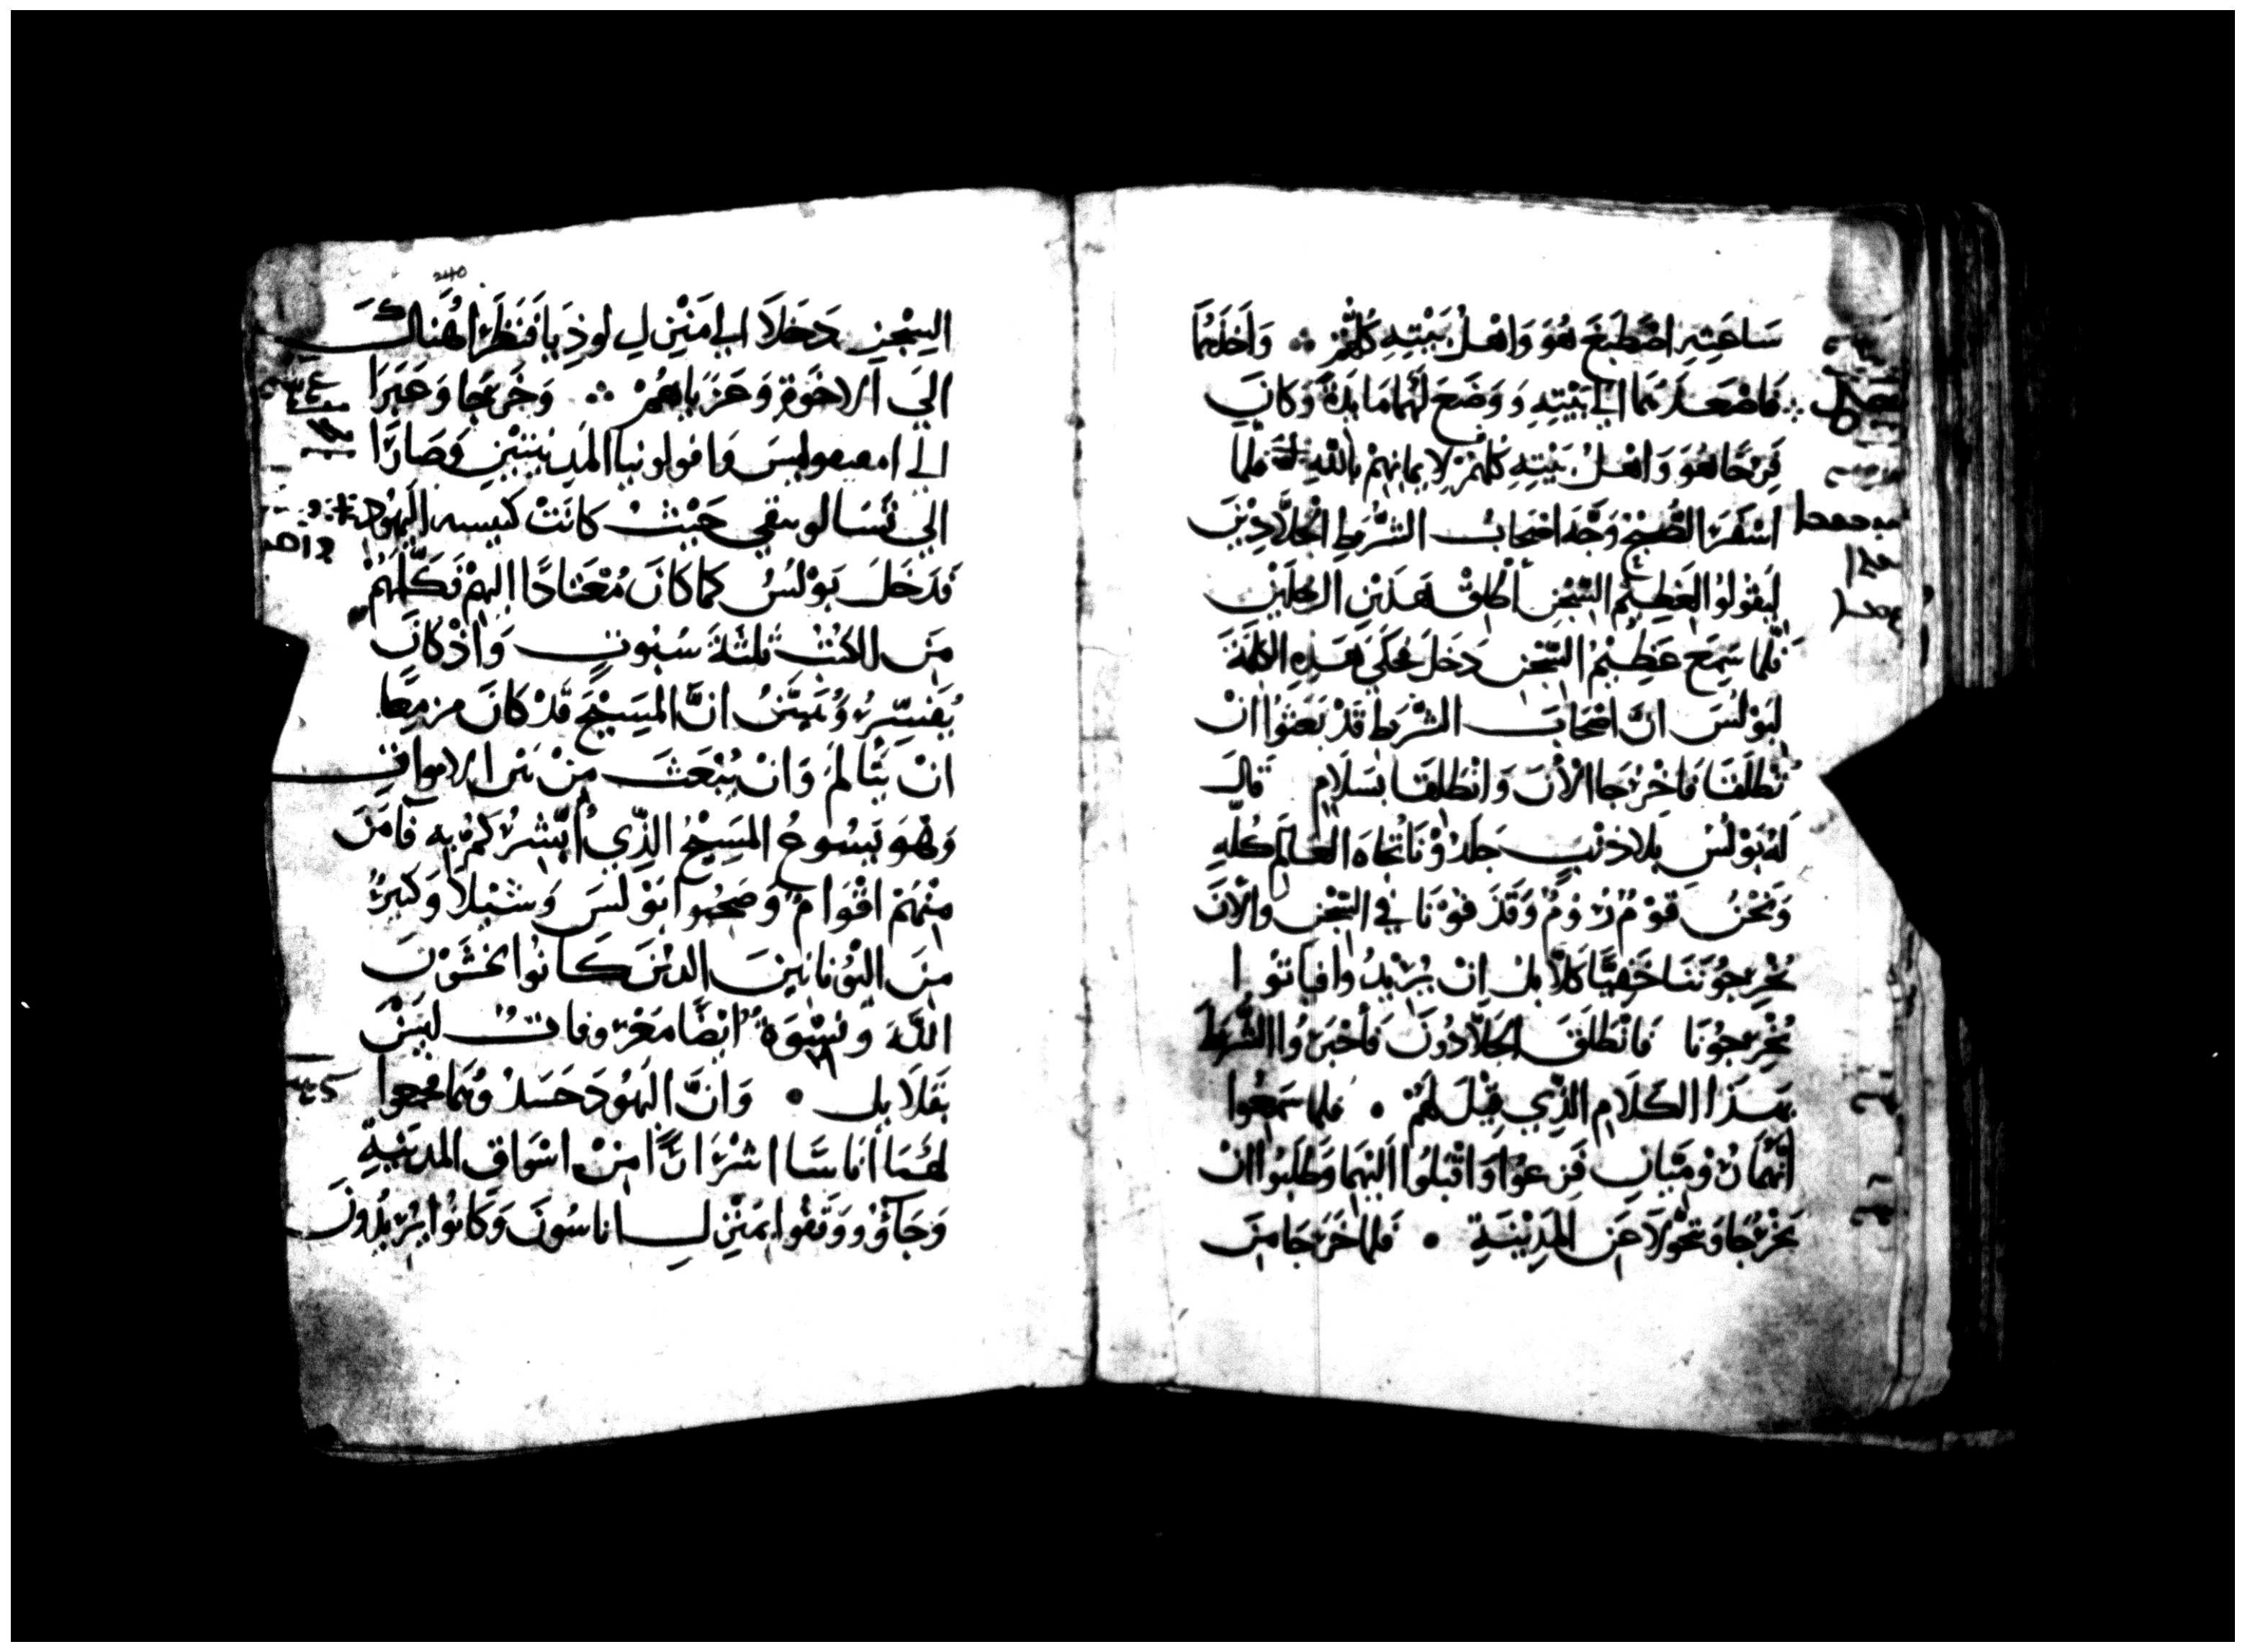 سَاعَتِهِ اصْطَبَغَ هُوَ وَاهْلُ بَيْتِهِ كُلُّهُمْ ⁘ وَاَخَذَهُمَا
فَاصْعَدَهُمَا الي بَيْتِهِ وَوَضَعَ لَهُمَا مَايدَةً وَكَانَ
فَرِحًا هُوَ وَاهْلُ بَيْتِهِ كلهُمْ لايمَانِهِمْ باللهِ فلما
اسْفَرَ الصُّبْحُ وَجَّهَ اصْحَابُ الشُّرَطِ الجَلاَّدِيْنَ
لِيَقُولُوا لِعَظِيْمِ السِّجْنِ اطْلِقْ هَذَيْنِ الرجُلَيْنِ
فَلما سَمِعَ عَظِيْمُ السِّجْنِ دَخَلَ فَحَكَي هَذِهِ الكَلِمَةَ
لِبَوْلُسَ انَّ اصْحَابَ الشُّرَطِ قَدْ بَعَثُوا انْ
تُطْلَقَا فَاخْرُجَا الْاَنَ وَانْطَلِقَا بِسَلاَمٍ قَالَ
لَهُ بَوْلُسُ بِلاَ ذَنْبٍ جَلَدُوْنَا تُجَاهَ العَالَمِ كُلِّهِ
وَنَحْنُ قَوْمٌ رُوْمٌ وَقَذَفُوْنَا فِي السِّجْنِ وَالْاَنَ
يُخْرِجُوْنَنَا خَفِيًّا كَلاَّ بَلْ اِنْ يُرِيْدُوا فيَاتوْا
يُخْرِجُوْنَا فَانْطَلَقَ الجَلاَّدُونَ فَاَخْبَرُوا الشُّرَطَ
بِهَذَا الكَلَامِ الذِّي قِيْلَ لَهُمْ • فلما سَمِعُوا
اَنَّهُمَا رُوْمِيَّانِ فَزِعُوا وَاقْبَلُوا اليْهِمَا وَطَلَبُوا انْ
يَخْرُجَا وَيَتحَوَّلاَ عَنِ المَدِيْنَةِ • فَلما خَرَجَا مِنَ
240
السِّجْنِ دَخَلاَ الي مَنْزِلِ لوذِيَا فَنَظَرَا هُنَاكَ
الي الاخْوَةِ وَعَزَّيَاهُمْ ⁘ وَخَرَجَا وَعَبَرَا
الي امفيبوليسَ وَافولونيا المَدِيْنتيْنِ وَصَارَا
الي تَسَالونيقي حَيْثُ كانَتْ كنيسه اليَهُود
فَدَخَلَ بَوْلُسُ كَمَا كانَ مُعْتَادًا اليهِمْ فكَلَّمَهُمْ
مِنَ الكُتُبِ ثلثَةَ سُبُوتٍ وَاذْ كَانَ
يُفَسِّرُ وَيُبَيِّنُ انَّ المَسِيْحَ قَدْ كَانَ مزمِعًا
انْ يَتَالَمَ وَانْ يُبْعَثَ مِنْ بَيْنِ الامواتِ
وَهُوَ يَسُوعُ المَسِيْحُ الذِّي اُبَشِّرُكُمْ بِهِ فَامَنَ
مِنْهُمْ اقْوَامٌ وَصَحِبُوا بَوْلُسَ وَشَيْلاَ وَكثِيْرٌ
مِنَ اليُوْنَانِيِّيْنَ الذِيْنَ كَانُوا يَخْشَوْنَ
اللهَ وَنِسْوَةٌ ايْضًا مَعْرُوفَاتٌ ليْسَ
بِقَلاَيل • وَانَّ اليَهُودَ حَسَدُوْهُمَا فجمعوا
لَهُمَا اُنَاسًا اشْرَارًا مِنْ اسْوَاقِ المَدِيْنةِ
وَجَاَوُوْ وَوَقَفُوا بِمَنْزِلِ اناسُونَ وَكَانُوا يُرِيْدُونَ